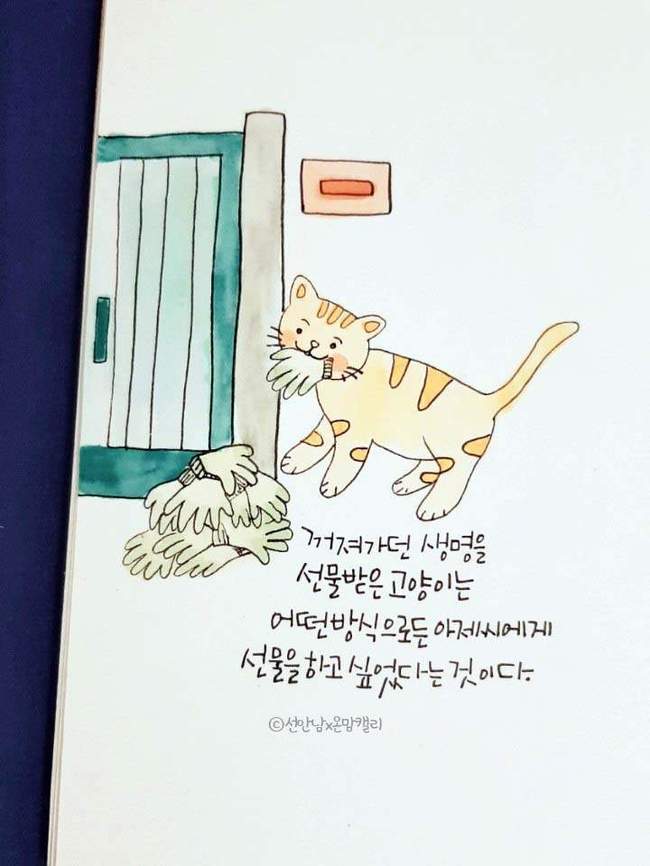 꺼져가던 생명을
선물받은 고양이는
어떤방식으로든 아저씨에게
선물을하고 싶었다는 것이다.
©선안남x온맘캘리